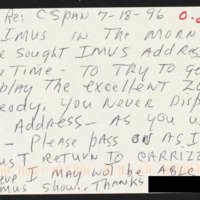 Re: CSPAN 7-18-96 O.
IMUS IN THE MORN
E SOUGHT IMUS ADDRES
E TIME - TO TRY TO G
PLAY THE EXCELLENT
RODY. YOU NEVER DISP
ADDRESS - AS YOU
- PLEASE PASS ON AS I
UST RETURN TO CARRIZ
I MAY NOT BE ABLE
MUS SHOW. THANKS